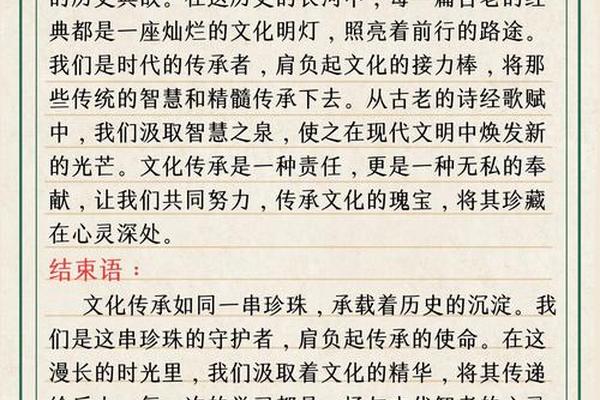 的历史典故。在这历史的长河中，每一篇古老的经
典都是一座灿烂的文化明灯，照亮着前行的路途。
我们是时代的传承者，肩负起文化的接力棒，将那
些传统的智慧和精髓传承下去。从古老的诗经歌赋
中，我们汲取智慧之泉，使之在现代文明中焕发新
的光芒。文化传承是一种责任，更是一种无私的奉
献，让我们共同努力，传承文化的瑰宝，将其珍藏
在心灵深处。
结束语：
文化传承如同一串珍珠，承载着历史的沉淀。我
们是这串珍珠的守护者，肩负起传承的使命。在这
漫长的时光里，我们汲取着文化的精华，将其传递
给后人。每一次的学习都是一场与古代智者的心灵